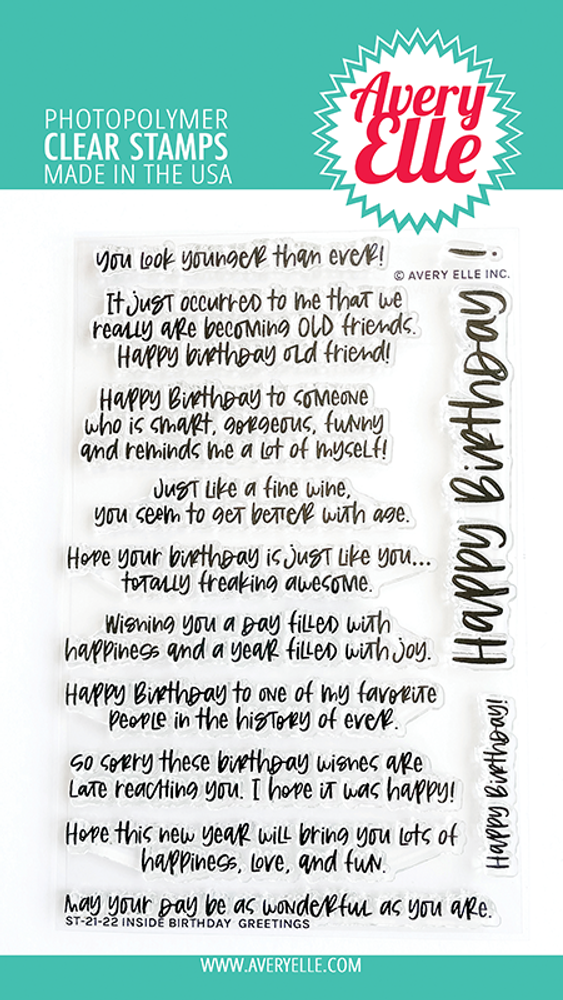 PHOTOPOLYMER
CLEAR STAMPS
MADE IN THE USA
Avery
Elle
you look younger than ever!
© AVERY ELLE INC.
It just occurred to me that we
really are becoming OLD friends.
Happy birthday old friend!
Happy Birthday to someone
who is smart, gorgeous, funny
and reminds me a lot of myself!
Just like a fine wine,
you seem to get better with age.
Hope your birthday is just like you...
totally freaking awesome.
Wishing you a day filled with
happiness and a year filled with joy.
Happy Birthday to one of my favorite
people in the history of ever.
so sorry these birthday wishes are
late reaching you. I hope it was happy!
Hope this new year will bring you lots of
happiness, love, and fun.
may your day be as wonderful as you are.
ST-21-22 INSIDE BIRTHDAY GREETINGS
Happy Birthday
!
Happy Birthday!
WWW.AVERYELLE.COM